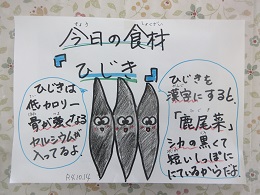 きょう しょくざい
今日の食材
『ひじき』
ひじきは
低カロリー
骨が強くなる
カルシウムが
入ってるよ
ひじきを
漢字にすると、
「鹿尾菜」
シカの黒くて
短いしっぽに
にているからだよ。
R4.10.14